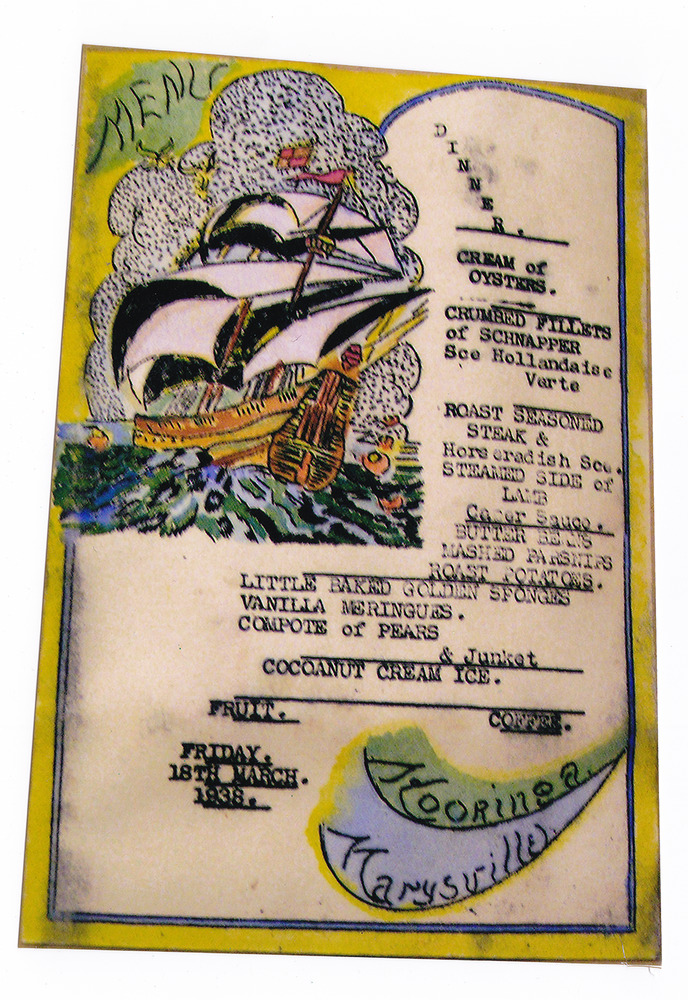 MENU
DINNER.
CREAM of
OYSTERS.
CRUMBED FILLETS
of SCHNAPPER
Sce Hollandaise
Verte
ROAST SEASONED
STEAK &
Horseradish Sce.
STEAMED SIDE of
LAMB
Caper Sauce.
BUTTER BEANS
MASHED PARSNIPS
ROAST POTATOES.
LITTLE BAKED GOLDEN SPONGES
VANILLA MERINGUES.
COMPOTE of PEARS
& Junket
COCOANUT CREAM ICE.
FRUIT. COFFEE.
FRIDAY.
18TH MARCH.
1938.
Mooringa.
Marysville.